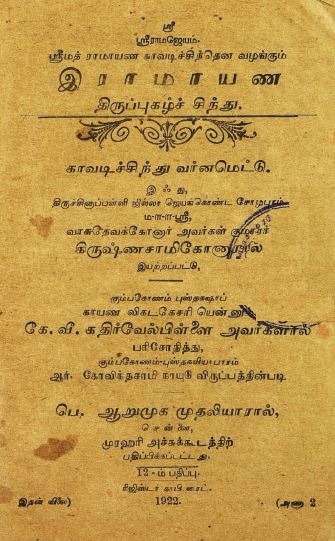 ஸ்ரீ
ஸ்ரீராமஜெயம்.
ஸ்ரீமத் ராமாயண காவடிச்சிந்தென வழங்கும்
இராமாயண
திருப்புகழ்ச் சிந்து.
காவடிச்சிந்து வர்னமெட்டு.
இஃது,
திருச்சினாப்பள்ளி ஜில்லா ஜெயக்கொண்ட சோழபுரம்
ம-ள-ள-ஸ்ரீ,
வாசுதேவக்கோனார் அவர்கள் குமாரர்
கிருஷ்ணசாமிகோனாரால்
இயற்றப்பட்டு,
கும்பகோணம் புஸ்தகஷாப்
காயண விகடகேசரி யென்னும்
கே. வீ. கதிர்வேல்பிள்ளை அவர்களால்
பரிசோதித்து,
கும்பகோணம்-புஸ்தகவியாபாரம்
ஆர். கோவிந்தசாமி நாயுடு விருப்பத்தின்படி
பெ. ஆறுமுக முதலியாரால்,
சென்னை,
முரஹரி அச்சுக்கூடத்திற்
பதிப்பிக்கப்பட்டது.
12-ம் பதிப்பு.
ரிஜிஸ்டர் காபி ரைட்.
இதன் விலை) 1922. (அணா 2